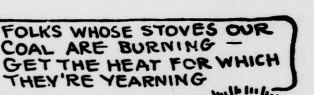 FOLKS WHOSE STOVES OUR
COAL ARE BURNING —
GET THE HEAT FOR WHICH
THEY'RE YEARNING